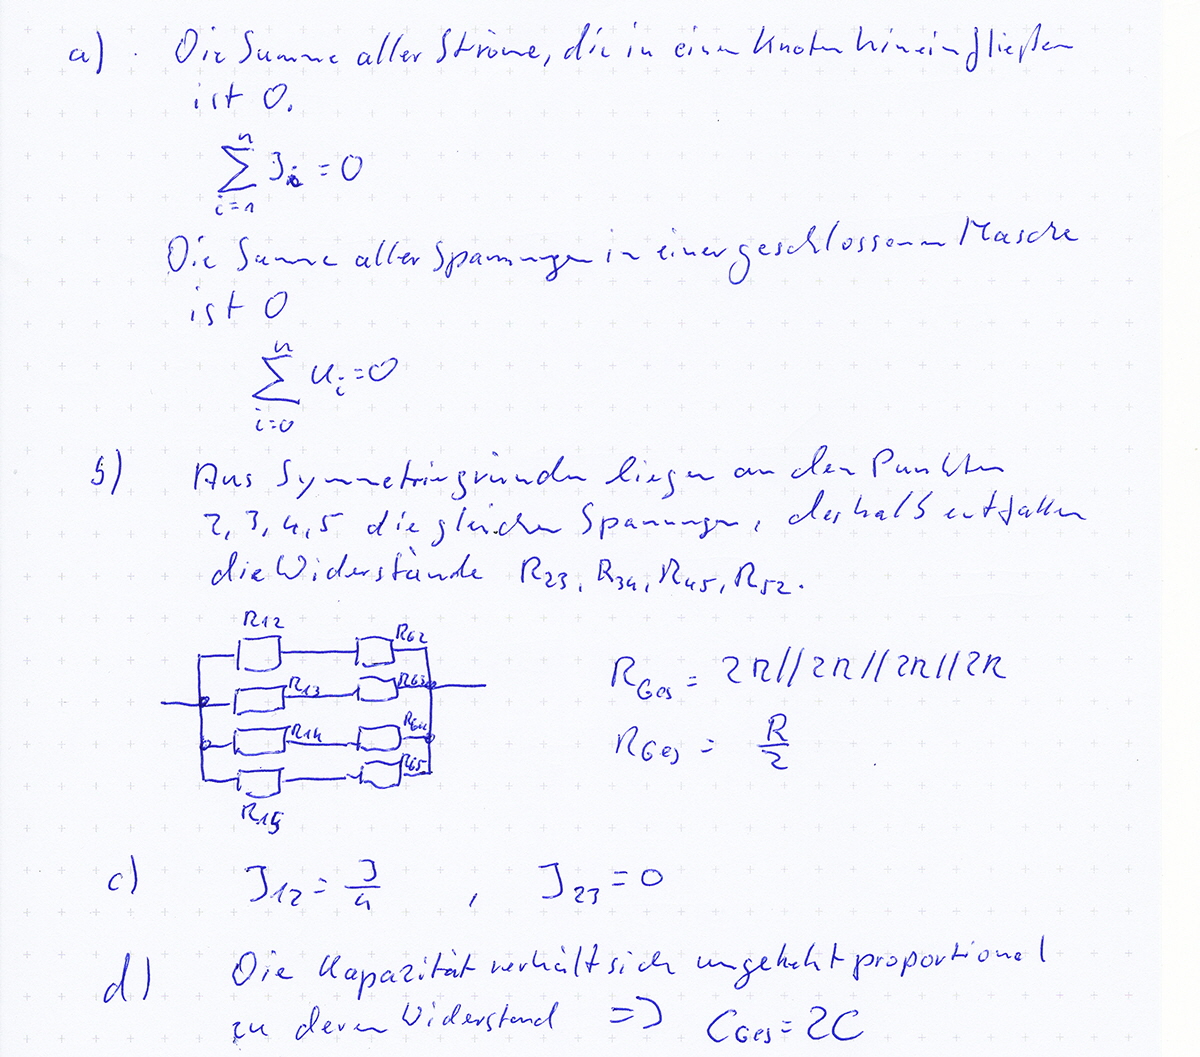 a) Die Summe aller Ströme, die in einen Knoten hineinfließen
ist 0.
n
∑ I_i = 0
i=1
Die Summe aller Spannungen in einer geschlossenen Masche
ist 0
n
∑ U_i = 0
i=0
b) Aus Symmetriegründen liegen an den Punkten
2, 3, 4, 5 die gleichen Spannungen, deshalb entfallen
die Widerstände R23, R34, R45, R52.
R12 R62
R13 R63
R14 R64
R65
R15
R_Ges = 2R//2R//2R//2R
R_Ges = R/2
c) I12 = I/4 , I23 = 0
d) Die Kapazität verhält sich umgekehrt proportional
zu deren Widerstand => C_Ges = 2C